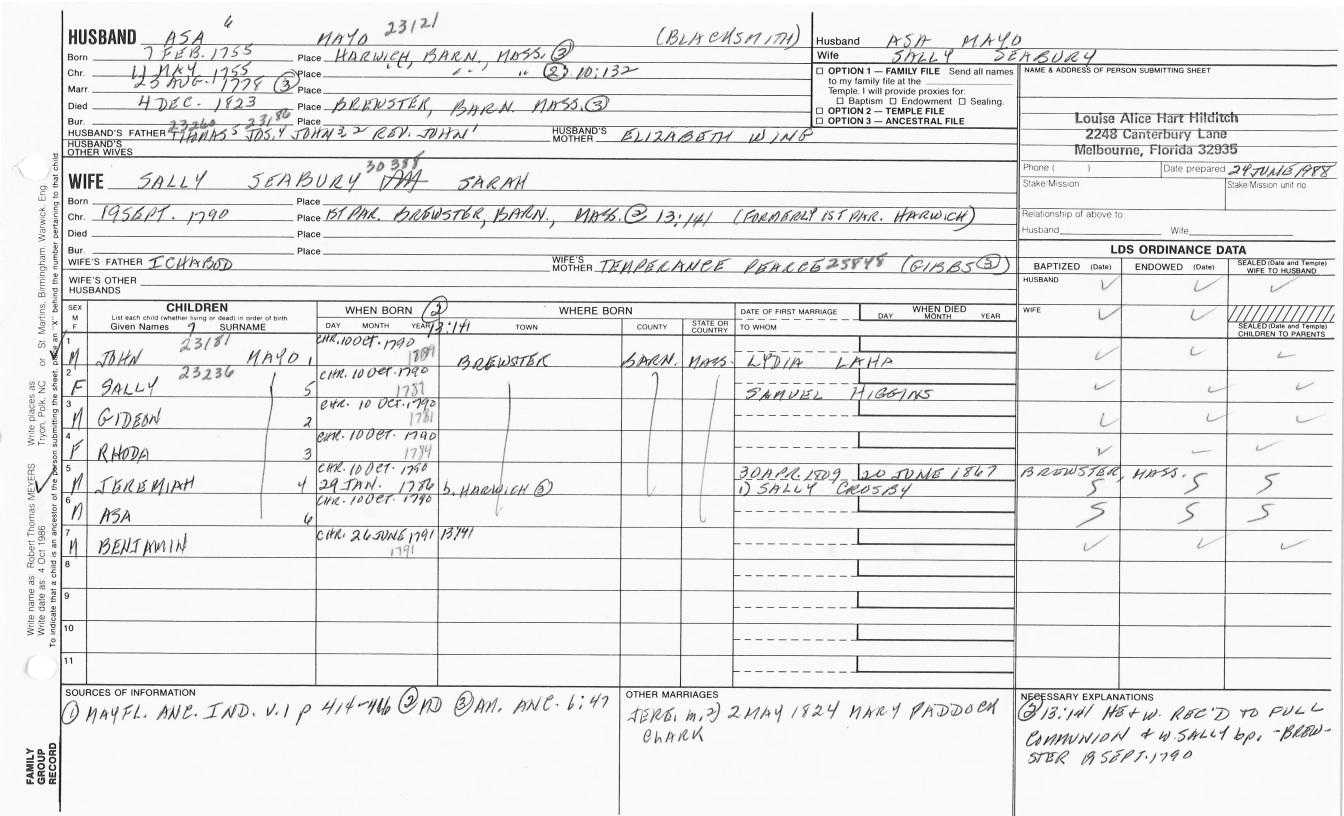 HUSBAND ASA 6 MAYO 23121 (BLACKSMITH)
Born 7 FEB. 1755 Place HARWICH, BARN., MASS. ③
Chr. 11 MAY. 1755 Place " " " ② 10:132
Marr. 23 AUG. 1778 ③ Place
Died 4 DEC. 1823 Place BREWSTER, BARN. MASS. ③
Bur. Place
23260 23186
HUSBAND'S FATHER THOMAS 5 JOS. 4 JOHN 3, 2 REV. JOHN 1 HUSBAND'S MOTHER ELIZABETH WING
HUSBAND'S OTHER WIVES
Husband ASA MAYO
Wife SALLY SEABURY
☐ OPTION 1 — FAMILY FILE Send all names
to my family file at the
Temple. I will provide proxies for:
☐ Baptism ☐ Endowment ☐ Sealing.
☐ OPTION 2 — TEMPLE FILE
☐ OPTION 3 — ANCESTRAL FILE
NAME & ADDRESS OF PERSON SUBMITTING SHEET
Louise Alice Hart Hilditch
2248 Canterbury Lane
Melbourne, Florida 32935
Phone ( ) Date prepared 24 JUNE 1988
Stake/Mission Stake/Mission unit no.
Relationship of above to:
Husband Wife
30388
WIFE SALLY SEABURY SARAH
Born Place
Chr. 19 SEPT. 1790 Place 1ST PAR. BREWSTER, BARN., MASS. ② 13:141 (FORMERLY 1ST PAR. HARWICH)
Died Place
Bur. Place
WIFE'S FATHER ICHABOD WIFE'S MOTHER TEMPERANCE PEARCE 25848 (GIBBS ③)
WIFE'S OTHER HUSBANDS
LDS ORDINANCE DATA
BAPTIZED (Date) ENDOWED (Date) SEALED (Date and Temple) WIFE TO HUSBAND
HUSBAND ✓ ✓ ✓
WIFE ✓ ✓
SEALED (Date and Temple) CHILDREN TO PARENTS
SEX M F CHILDREN
List each child (whether living or dead) in order of birth.
Given Names 7 SURNAME
WHEN BORN ②
DAY MONTH YEAR 13:141
WHERE BORN
TOWN COUNTY STATE OR COUNTRY
DATE OF FIRST MARRIAGE
TO WHOM
WHEN DIED
DAY MONTH YEAR
1 M 23181 JOHN MAYO 1 CHR. 10 OCT. 1790 BREWSTER BARN. MASS. LYDIA LAHA ✓ ✓ ✓
2 F 23236 SALLY 5 CHR. 10 OCT. 1790 SAMUEL HIGGINS ✓ ✓ ✓
3 M GIDEON 2 CHR. 10 OCT. 1790 1781 ✓ ✓ ✓
4 F RHODA 3 CHR. 10 OCT. 1790 1784 ✓ — ✓
5 M JEREMIAH 4 CHR. 10 OCT. 1790 29 JAN. 1786 b. HARWICH ③ 30 APR. 1809 20 JUNE 1867 BREWSTER, MASS.
1) SALLY CROSBY S S S
6 M ASA 6 CHR. 10 OCT. 1790 S S S
7 M BENJAMIN CHR. 26 JUNE 1791 13:141 1791 ✓ ✓ ✓
8
9
10
11
SOURCES OF INFORMATION
① MAYFL. ANC. IND. V.1 p 414-416 ② MD ③ AM. ANC. 6:47
OTHER MARRIAGES
JERE. m. 2) 2 MAY 1824 MARY PADDOCK
CLARK
NECESSARY EXPLANATIONS
② 13:141 HE & W. REC'D TO FULL
COMMUNION & W. SALLY bp. - BREW-
STER 19 SEPT. 1790
FAMILY GROUP RECORD
Write name as: Robert Thomas MEYERS Write places as: Tryon, Polk, NC or St. Martins, Birmingham, Warwick, Eng.
Write date as: 4 Oct 1986
To indicate that a child is an ancestor of the person submitting the sheet, place an "X" behind the number pertaining to that child